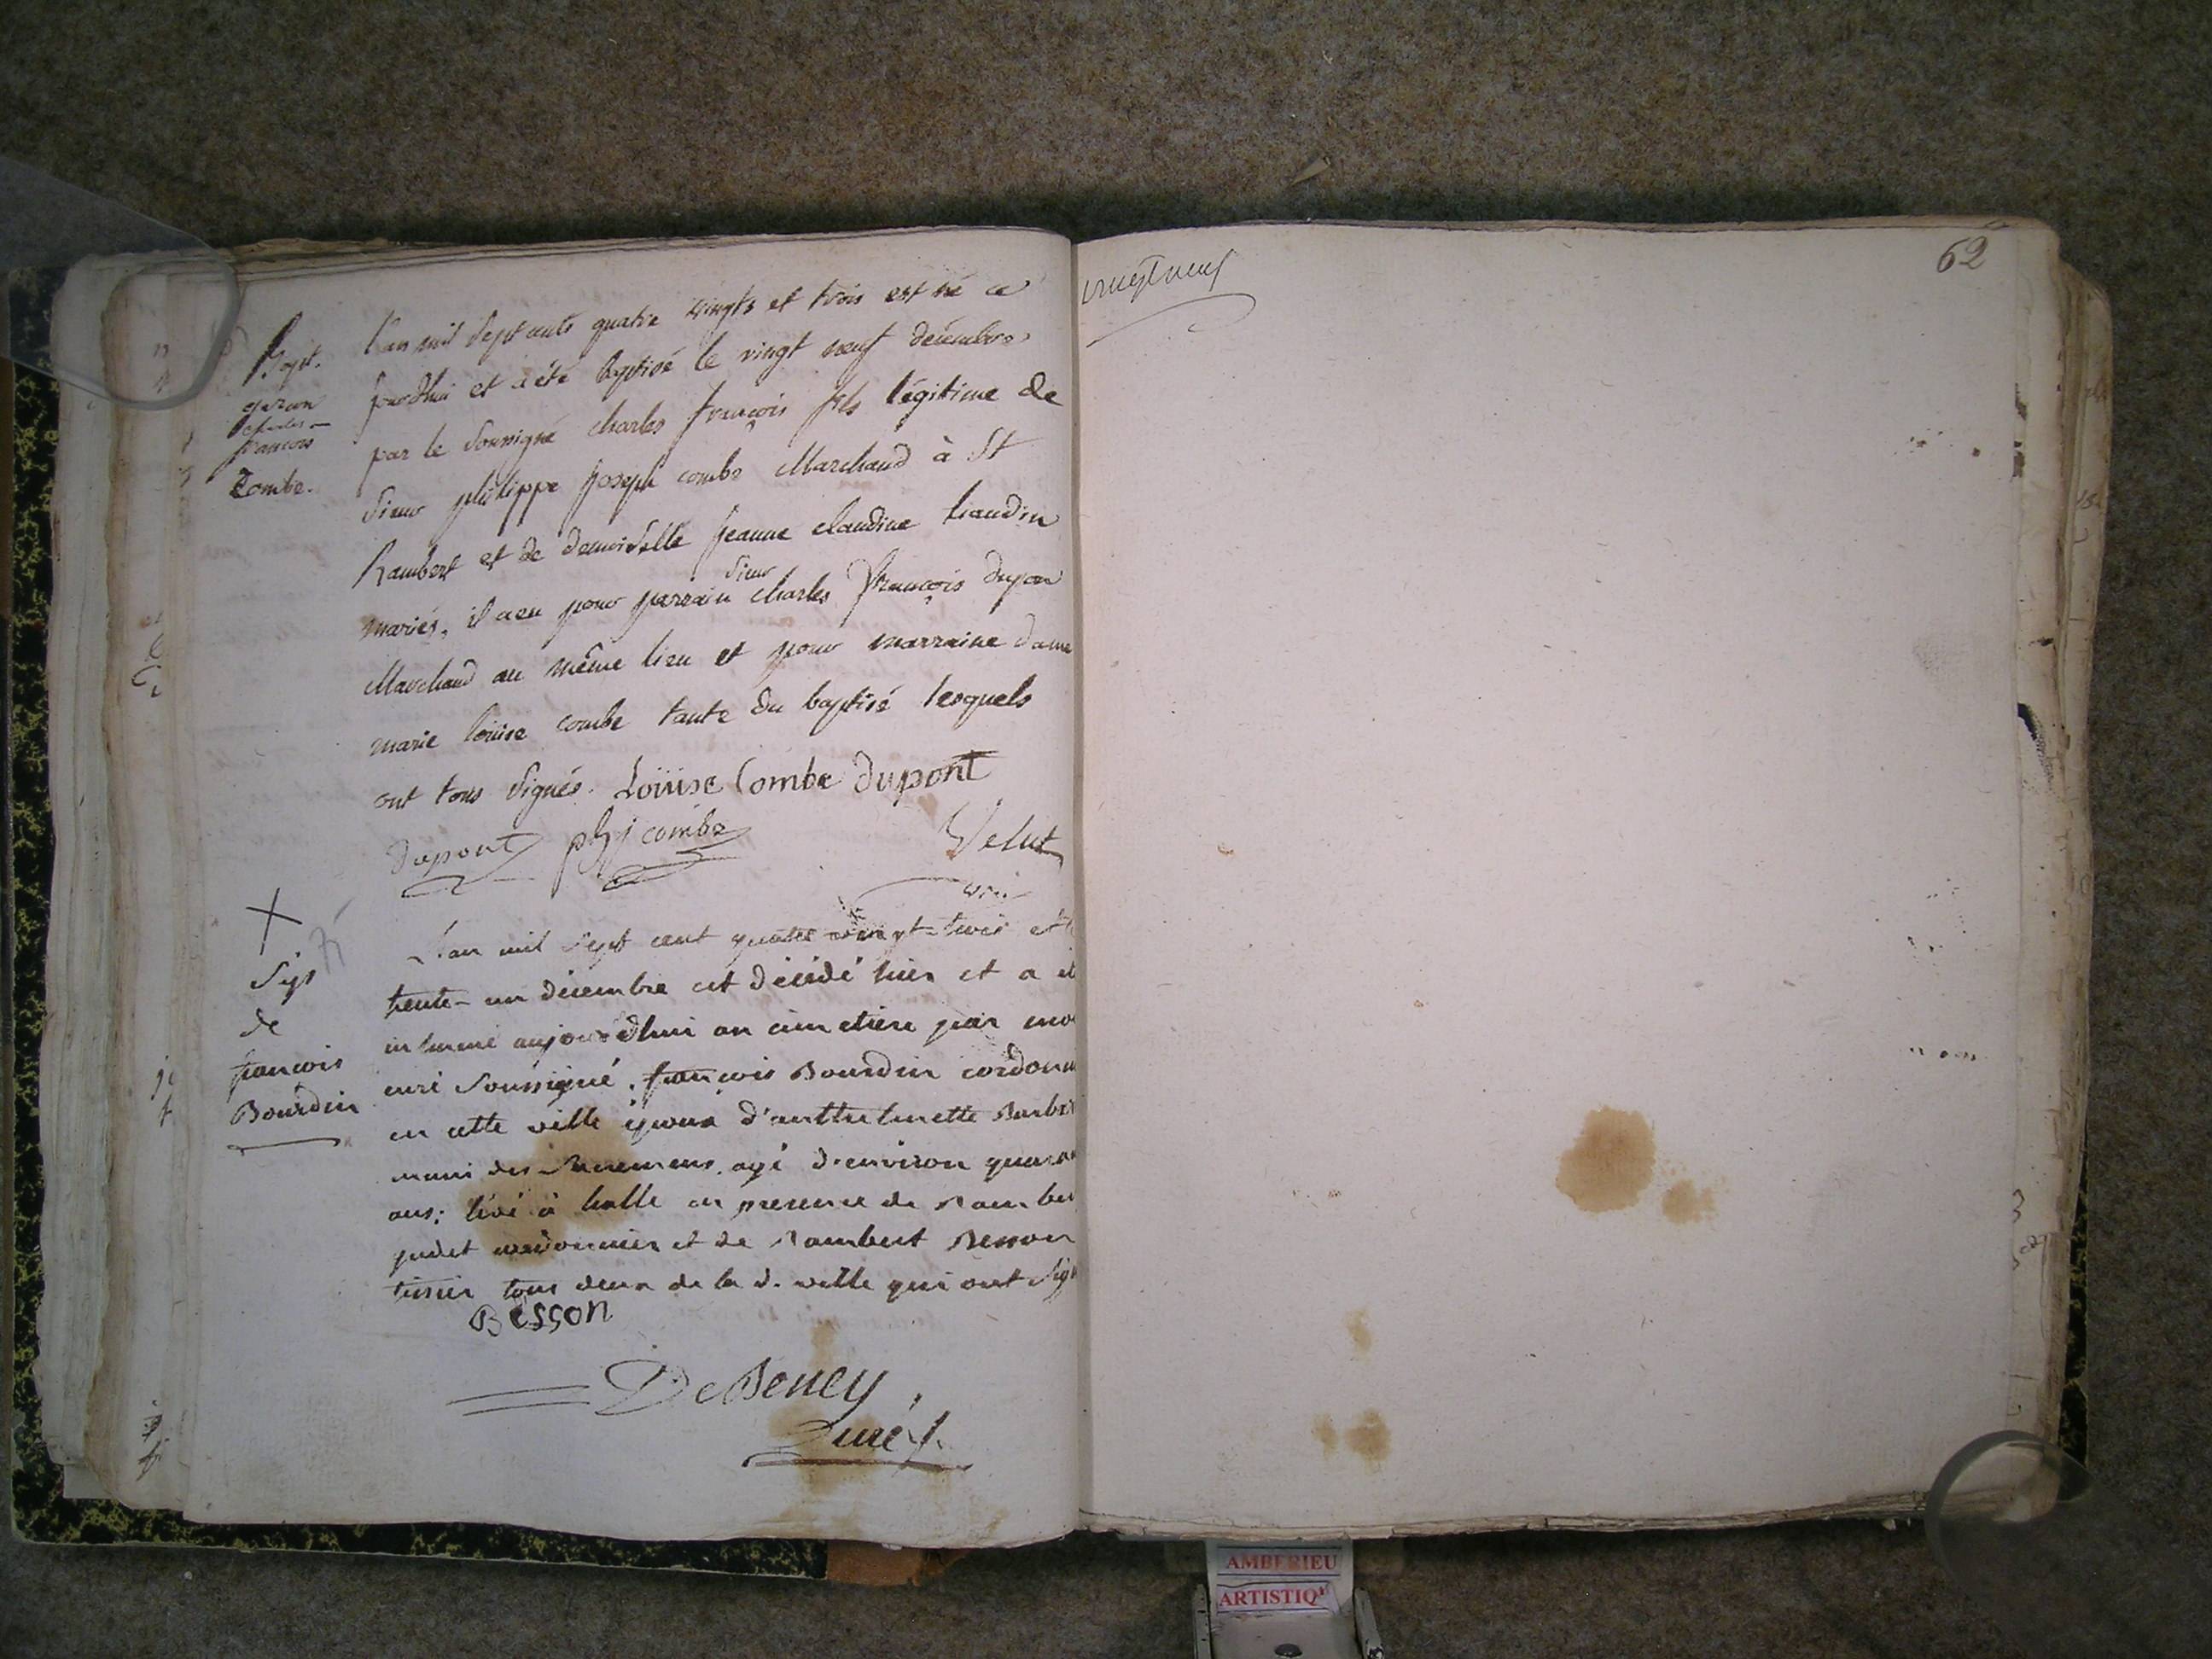 Bapt.
françois
Combe.
L'an mil Sept cents quatre vingts et trois est né ce
jourdhui et a été baptisé le vingt neuf décembre
par le soussigné charles françois fils légitime de
Sieur philippe joseph combe Marchand à St
Rambert et de demoiselle jeanne claudine liaudin
mariés, il a eu pour parrain Sieur charles françois dupon
Marchand au même lieu et pour marraine dame
marie louise combe tante du baptisé lesquels
ont tous signés. Loüise Combe dupont
dupont phj combe Velut
vic.
Sep
de
françois
Bourdin
L'an mil Sept cent quatre vingt-trois et
trente-un décembre est décédé hier et a
inhumé aujourdhui au cimetiere par
curé soussigné, françois Bourdin
en cette ville époux d'anthelmette
muni des Sacremens, agé d'environ
ans; livé à halle en presence de
judet cordonnier et de Rambert Besson
tissier tous deux de la d. ville qui ont
Besson
DeBeney
Curé
vingt neuf
62
AMBERIEU
ARTISTIQ